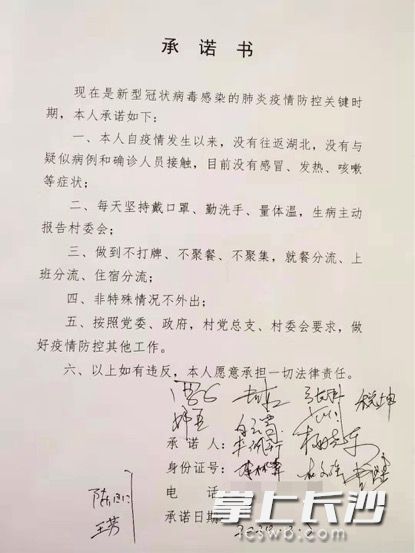 承 诺 书
现在是新型冠状病毒感染的肺炎疫情防控关键时
期，本人承诺如下：
一、本人自疫情发生以来，没有往返湖北，没有与
疑似病例和确诊人员接触，目前没有感冒、发热、咳嗽
等症状；
二、每天坚持戴口罩、勤洗手、量体温，生病主动
报告村委会；
三、做到不打牌、不聚餐、不聚集，就餐分流、上
班分流、住宿分流；
四、非特殊情况不外出；
五、按照党委、政府，村党总支、村委会要求，做
好疫情防控其他工作。
六、以上如有违反，本人愿意承担一切法律责任。
承 诺 人：
身份证号：
电 话
承诺日期
王芳
掌上长沙
icswo.com